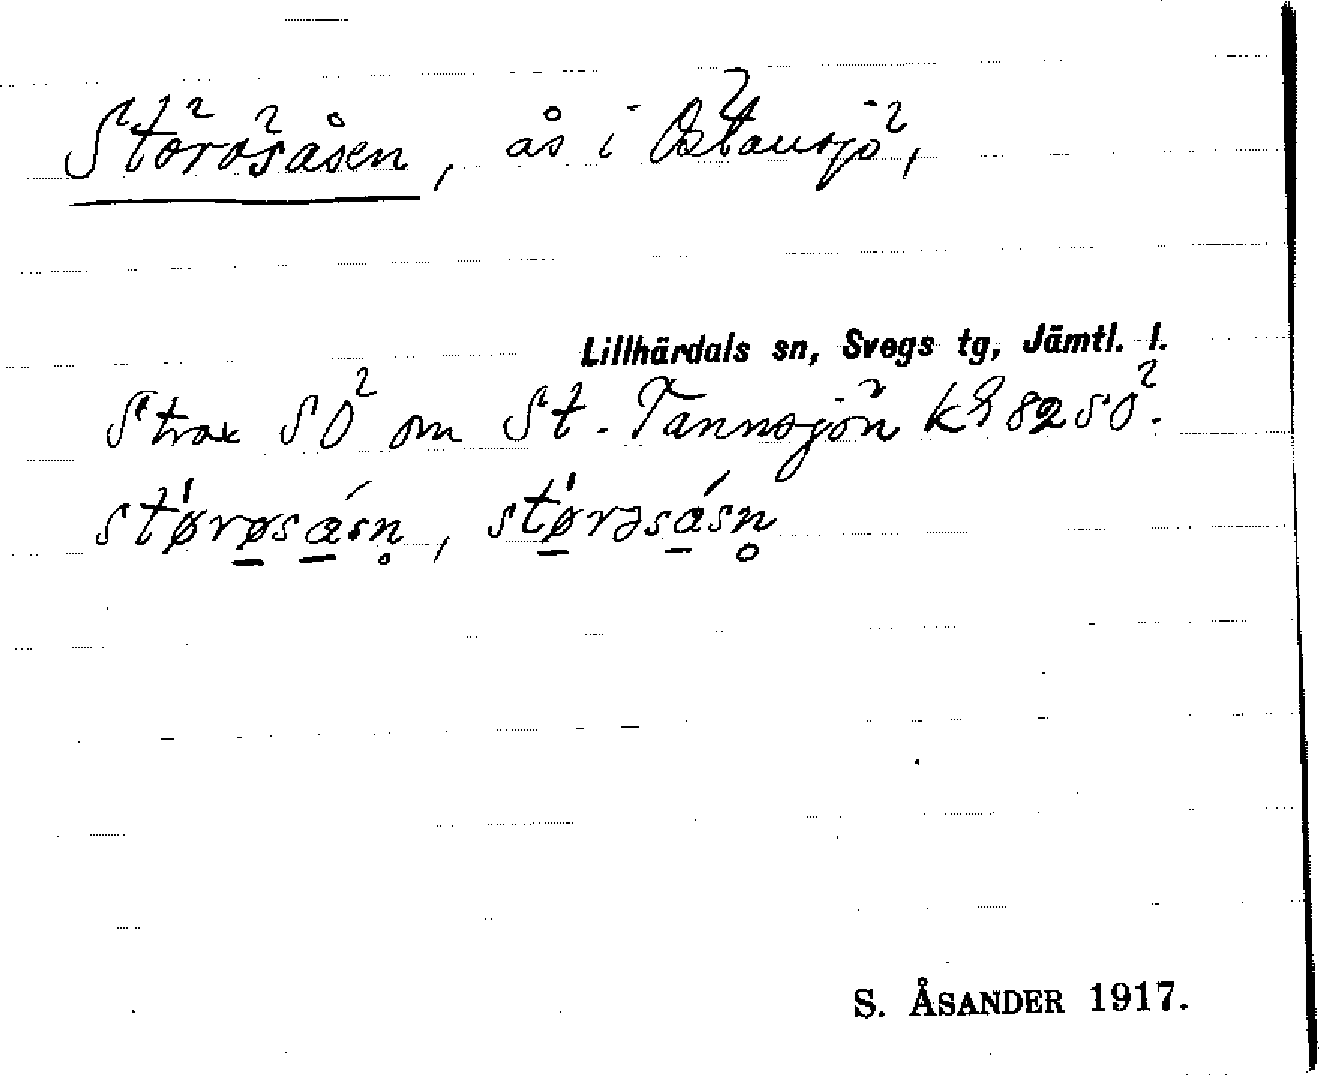 Störösåsen, ås i Östansjö,
Lillhärdals sn, Svegs tg, Jämtl. l.
Strax SÖ om St. Tannsjön k982SÖ.
størøsåsn̥, størəsåsn̥
S. ÅSANDER 1917.